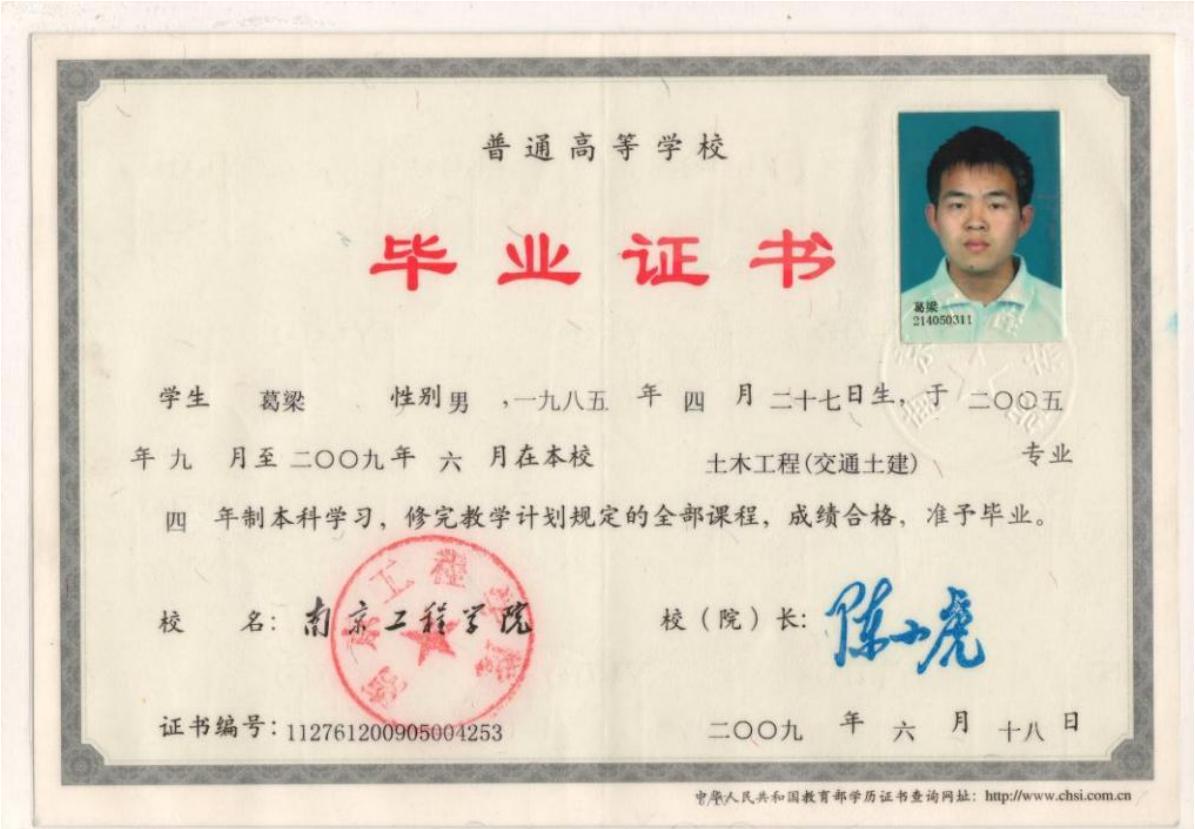 普通高等学校
毕业证书
葛梁
214050311
学生 葛梁 性别 男 ,一九八五 年 四 月 二十七 日生, 于 二〇〇五
年 九 月至 二〇〇九 年 六 月在本校 土木工程(交通土建) 专业
四 年制本科学习, 修完教学计划规定的全部课程, 成绩合格, 准予毕业。
南京工程学院
校 名: 南京工程学院 校(院)长: 陈小虎
证书编号: 112761200905004253 二〇〇九 年 六 月 十八 日
中华人民共和国教育部学历证书查询网址: http://www.chsi.com.cn